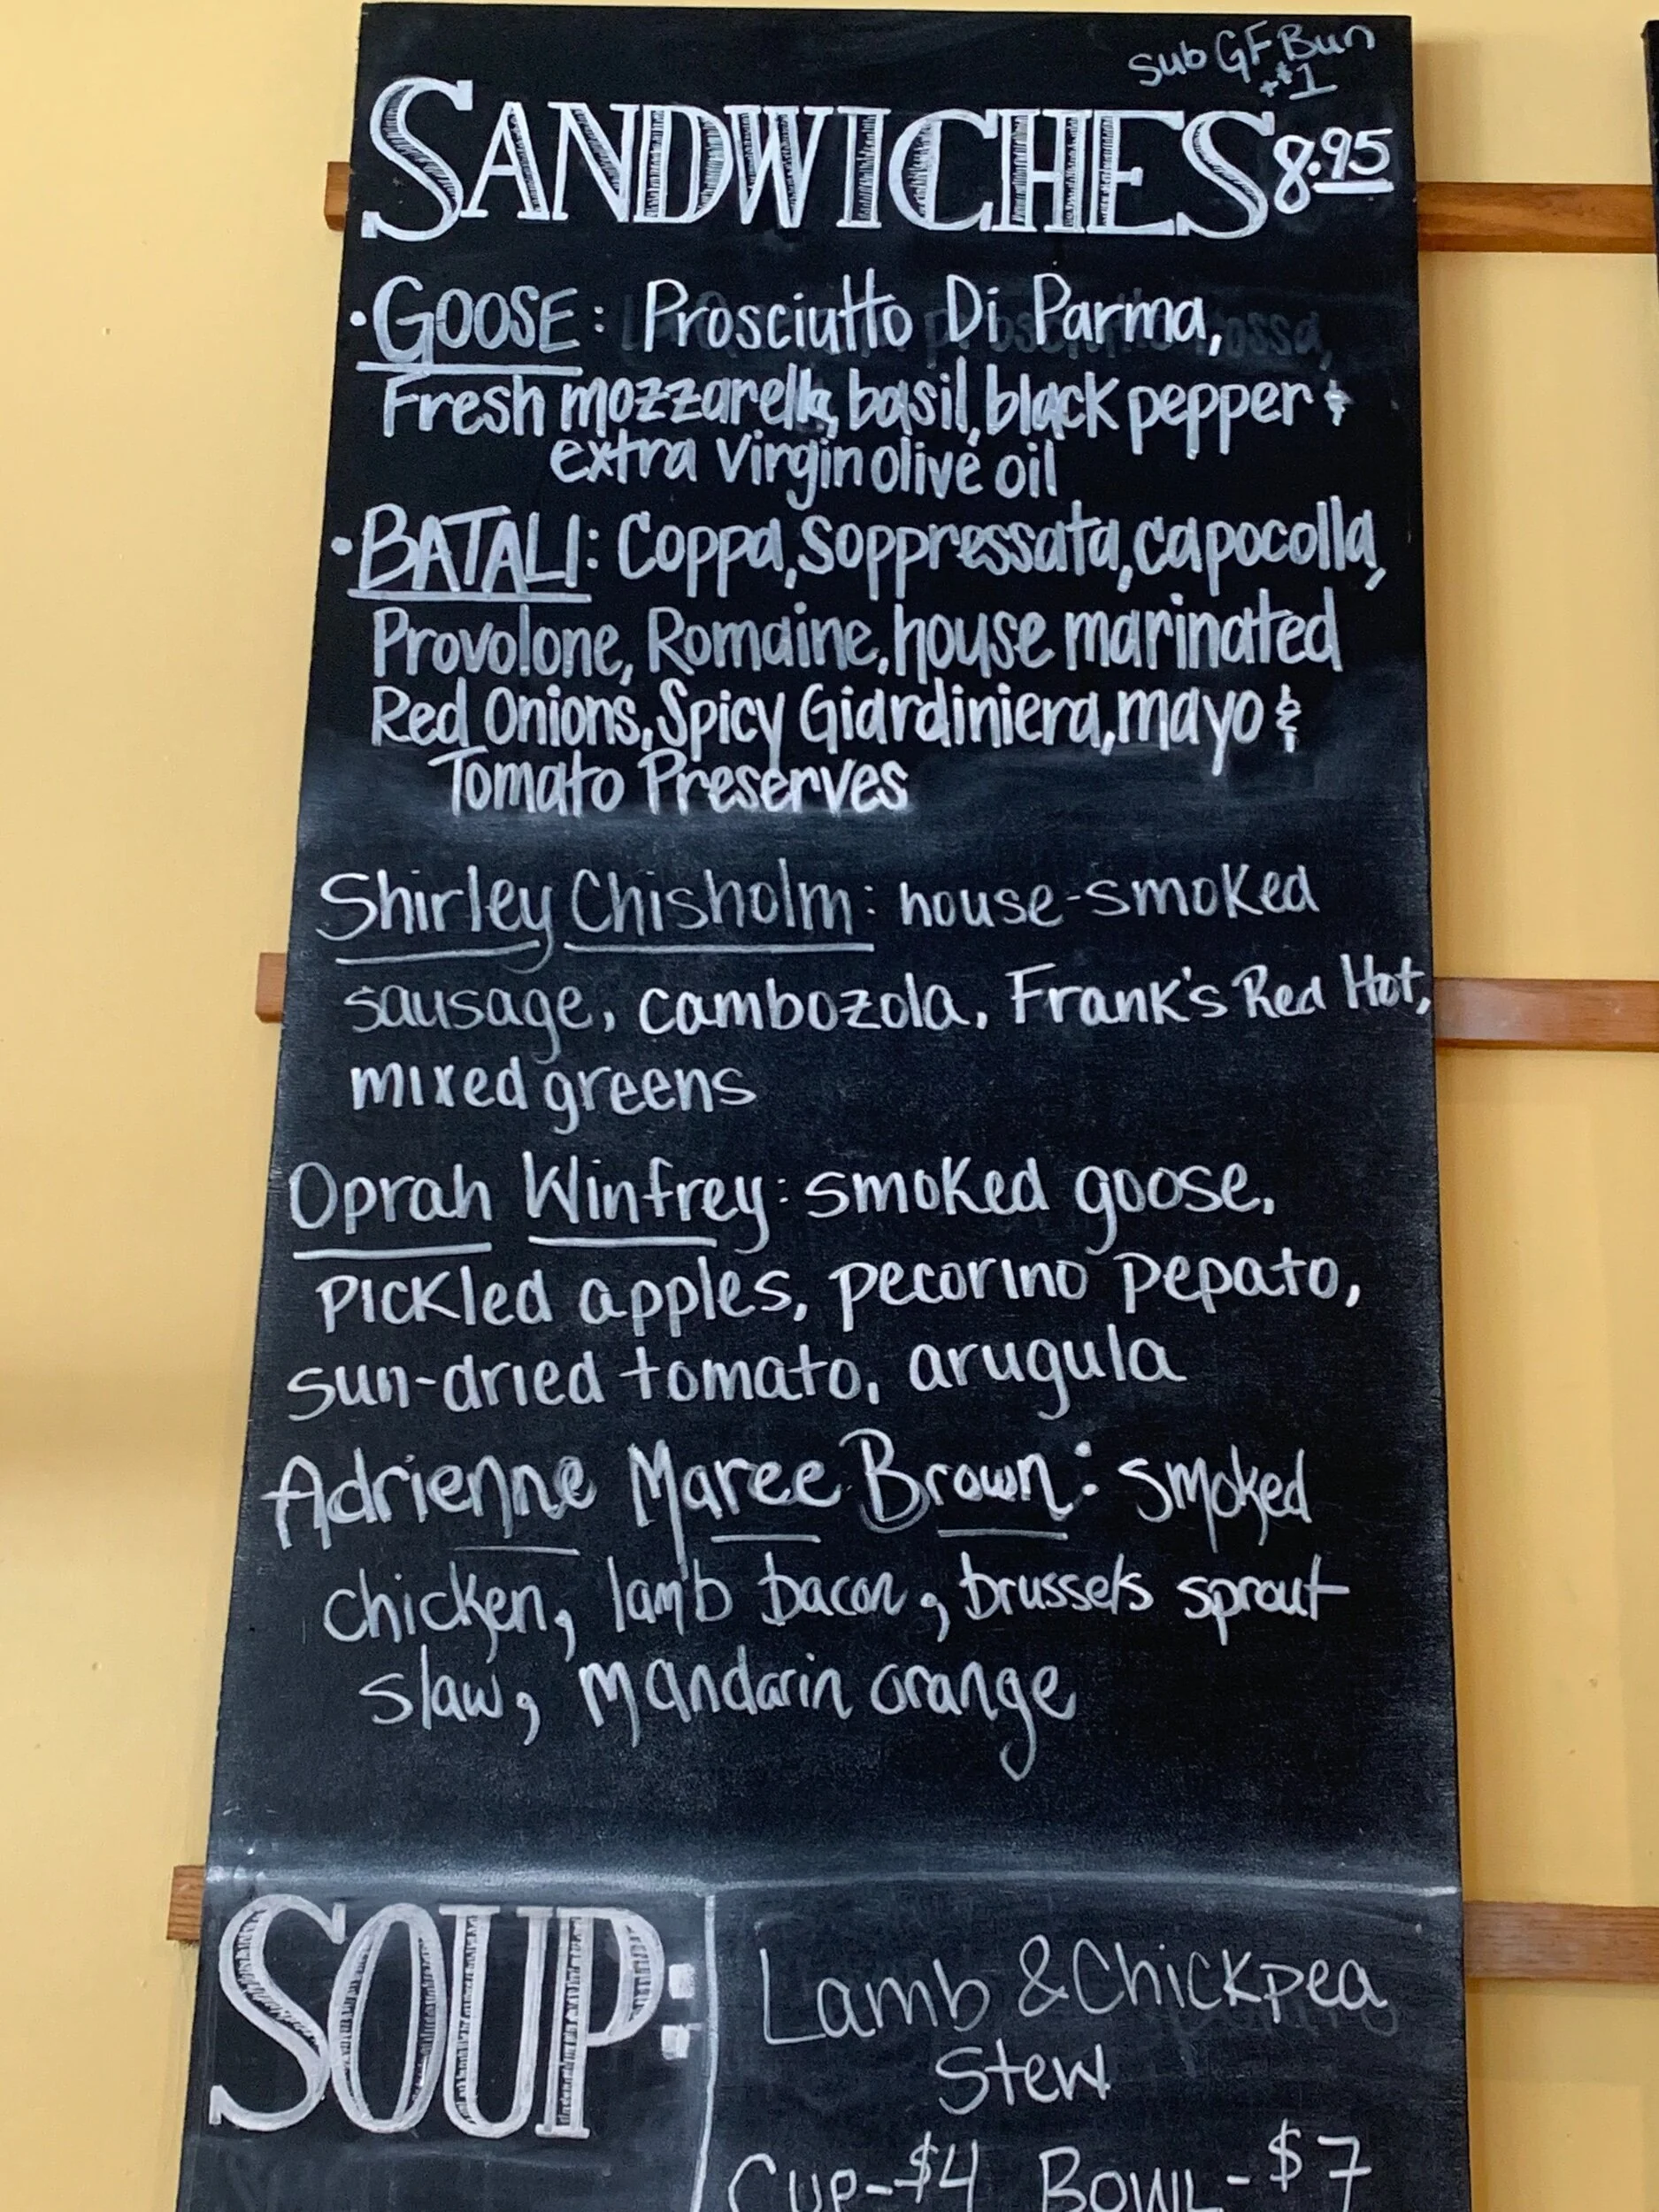 Sub GF Bun
+$1
SANDWICHES 8.95
• GOOSE: Prosciutto Di Parma,
Fresh mozzarella, basil, black pepper &
extra virgin olive oil
• BATALI: Coppa, Soppressata, capocolla,
Provolone, Romaine, house marinated
Red Onions, Spicy Giardiniera, mayo &
Tomato Preserves
Shirley Chisholm: house-smoked
sausage, cambozola, Frank's Red Hot,
mixed greens
Oprah Winfrey: smoked goose,
pickled apples, pecorino pepato,
sun-dried tomato, arugula
Adrienne Maree Brown: smoked
chicken, lamb bacon, brussels sprout
slaw, mandarin orange
SOUP:
Lamb & Chickpea
Stew
Cup-$4 Bowl-$7